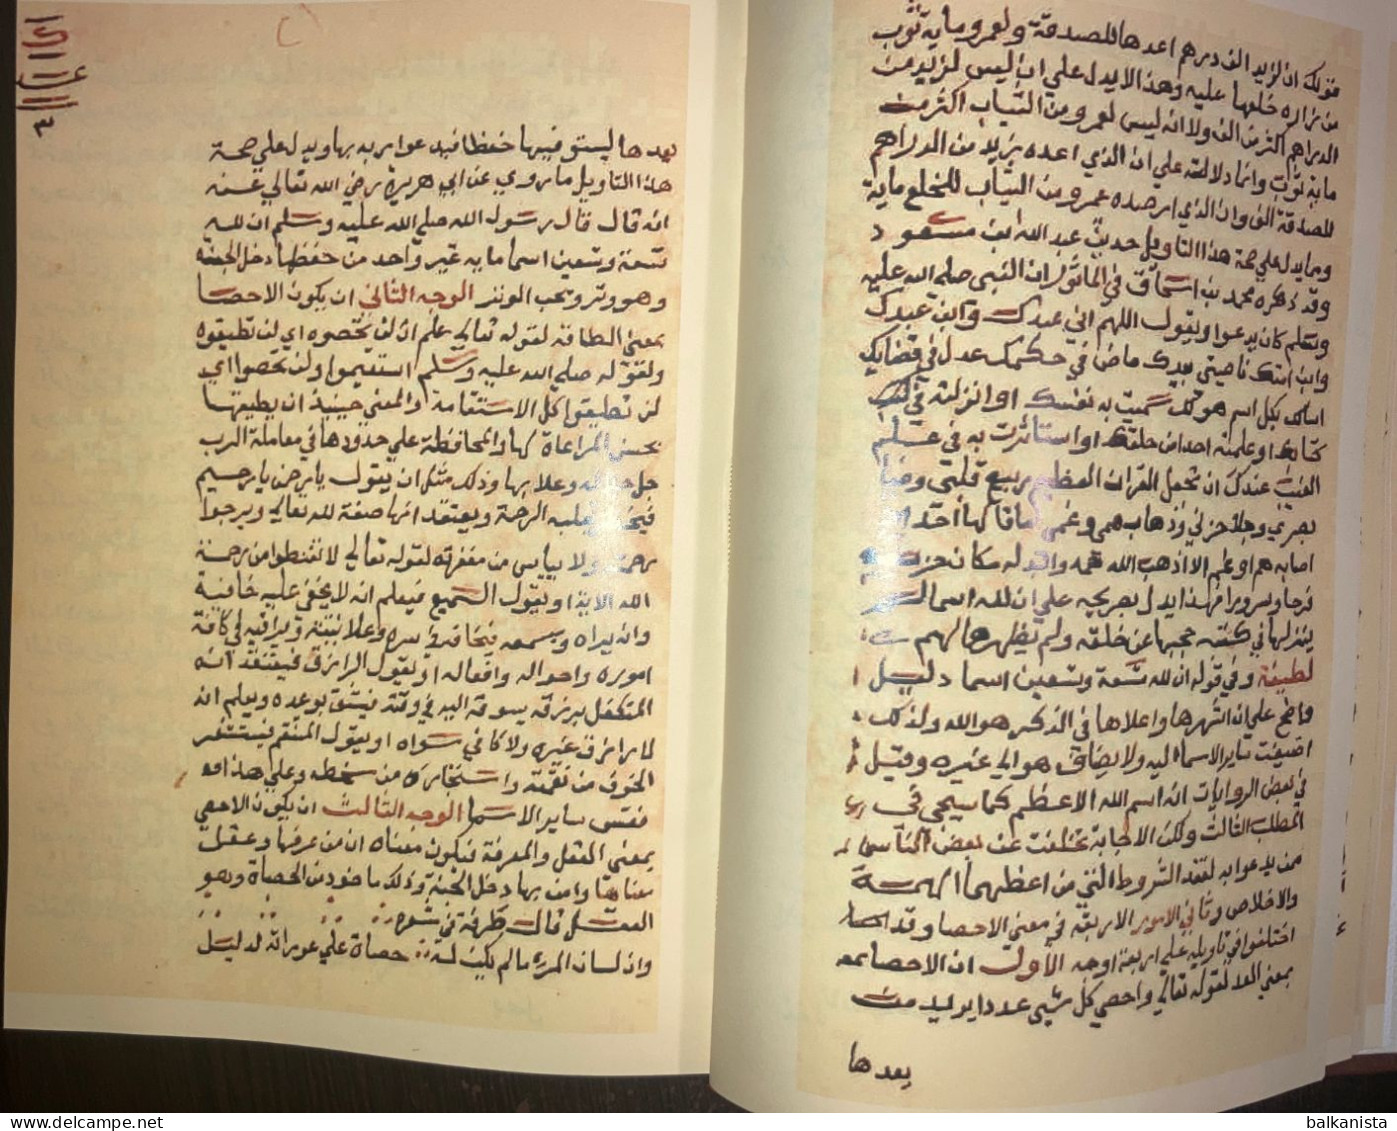 قولك ان لزيد الف درهم اعدها للصدقة ولعمرو ماية ثوب
من زاره خلعها عليه وهذا لا يدل علي ان ليس لزيد من
الدراهم اكثر من الف ولا انه ليس لعمرو من الثياب اكثر من
ماية ثوب وانما دلالته علي ان الذي اعده زيد من الدراهم
للصدقة الف وان الذي ارصده عمرو من الثياب للخلع ماية
ومما يدل علي صحة هذا التاويل حديث عبد الله ابن مسعود
وقد ذكره محمد بن اسحاق في الماثور ان النبي صلي الله عليه
وسلم كان يدعوا ويقول اللهم اني عبدك وابن عبدك
وابن امتك ناصيتي بيدك ماض في حكمك عدل في قضايك
اسالك بكل اسم هو لك سميت به نفسك او انزلته في
كتابك او علمته احدا من خلقك او استاثرت به في علم
الغيب عندك ان تجعل القران العظيم ربيع قلبي وضيا
بصري وجلا حزني وذهاب همي وغمي فما قالها احد
اصابه هم او غم الا اذهب الله همه وابدله مكان حزنه
فرحا وسرورا فهذا يدل بصريحه علي ان لله اسما لم
ينزلها في كتبه حجبها عن خلقه ولم يظهرها لهم
لطيفة وفي قوله ان لله تسعة وتسعين اسما دليل
واضح علي ان اشهرها واعلاها في الذكر هو الله ولذلك
اضيفت ساير الاسما اليه ولا يضاف هو الي غيره وقيل
في بعض الروايات انه اسم الله الاعظم كما سيجي في
المطلب الثالث ولكن الاجابة تخلفت عن بعض الناس
ممن يدعوا به لفقد الشروط التي من اعظمها الهمة
والاخلاص وثاني الامور الاربعة في معني الاحصا وقد
اختلفوا في تاويله علي اربعة اوجه الاول ان الاحصا
بمعني العد لقوله تعالي واحصي كل شيي عددا يريد من
بعدها
بعدها ليستوفيها حفظا فيدعوا ربه بها ويدل علي صحة
هذا التاويل ما روي عن ابي هريرة رضي الله تعالي عنه
انه قال قال رسول الله صلي الله عليه وسلم ان لله
تسعة وتسعين اسما ماية غير واحد من حفظها دخل الجنة
وهو وتر ويحب الوتر الوجه الثاني ان يكون الاحصا
بمعني الطاقه لقوله تعالي علم ان لن تحصوه اي لن تطيقوه
ولقوله صلي الله عليه وسلم استقيموا ولن تحصوا اي
لن تطيقوا كل الاستقامة والمعني حينيذ ان يطيقها
بحسن المراعاة لها والمحافظة علي حدودها في معاملة الرب
جل وعلا بها وذلك مثل ان يقول يا رحمن يا رحيم
فيخطر بقلبه الرحمة ويعتقد انها صفة لله تعالي ويرجوا
رحمته ولا يياس من مغفرته لقوله تعالي لا تقنطوا من رحمة
الله الاية او يقول السميع فيعلم انه لا يخفي عليه خافية
وانه يراه ويسمعه فيخافه في سره وعلانيته ويراقبه في كافة
اموره واحواله وافعاله او يقول الرازق فيعتقد انه
المتكفل برزقه يسوقه اليه في وقته فيثق بوعده ويعلم انه
لا رازق غيره ولا كافي سواه او يقول المنتقم فيستشعر
الخوف من نقمته واستجاره من سخطه وعلي هذا
فقس ساير الاسما الوجه الثالث ان يكون الاحصي
بمعني العقل والمعرفة فيكون معناه ان من عرفها وعقل
معناها وامن بها دخل الجنة وذلك ماخوذ من الحصاة وهو
العقل قال طرفة في شعره
وان لسان المرء ما لم يكن له حصاة علي عوراته لدليل
balkanista